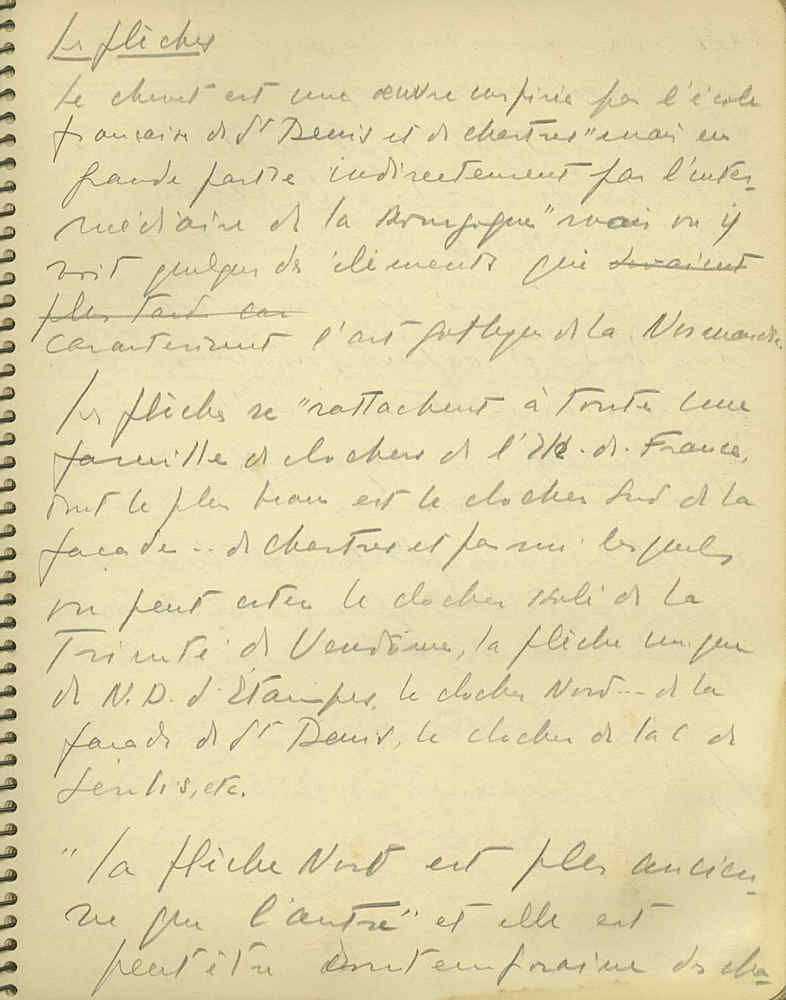 Les flèches
Le chevet est une œuvre inspirée par l'école
française de St Denis et de Chartres "mais en
grande partie indirectement par l'inter-
médiaire de la Bourgogne" mais on y
voit quelques des éléments qui devaient
plus tard car
caractérisent l'art gothique de la Normandie.
Les flèches se "rattachent à toute une
famille de clochers de l'Ile-de-France,
dont le plus beau est le clocher Sud de la
façade... de Chartres et parmi lesquels
on peut citer le clocher isolé de la
Trinité de Vendôme, la flèche unique
de N.D. d'Etampes, le clocher Nord... de la
façade de St Denis, le clocher de la C de
Senlis, etc.
"La flèche Nord est plus ancien-
ne que l'autre" et elle est
peut être contemporaine des cha-